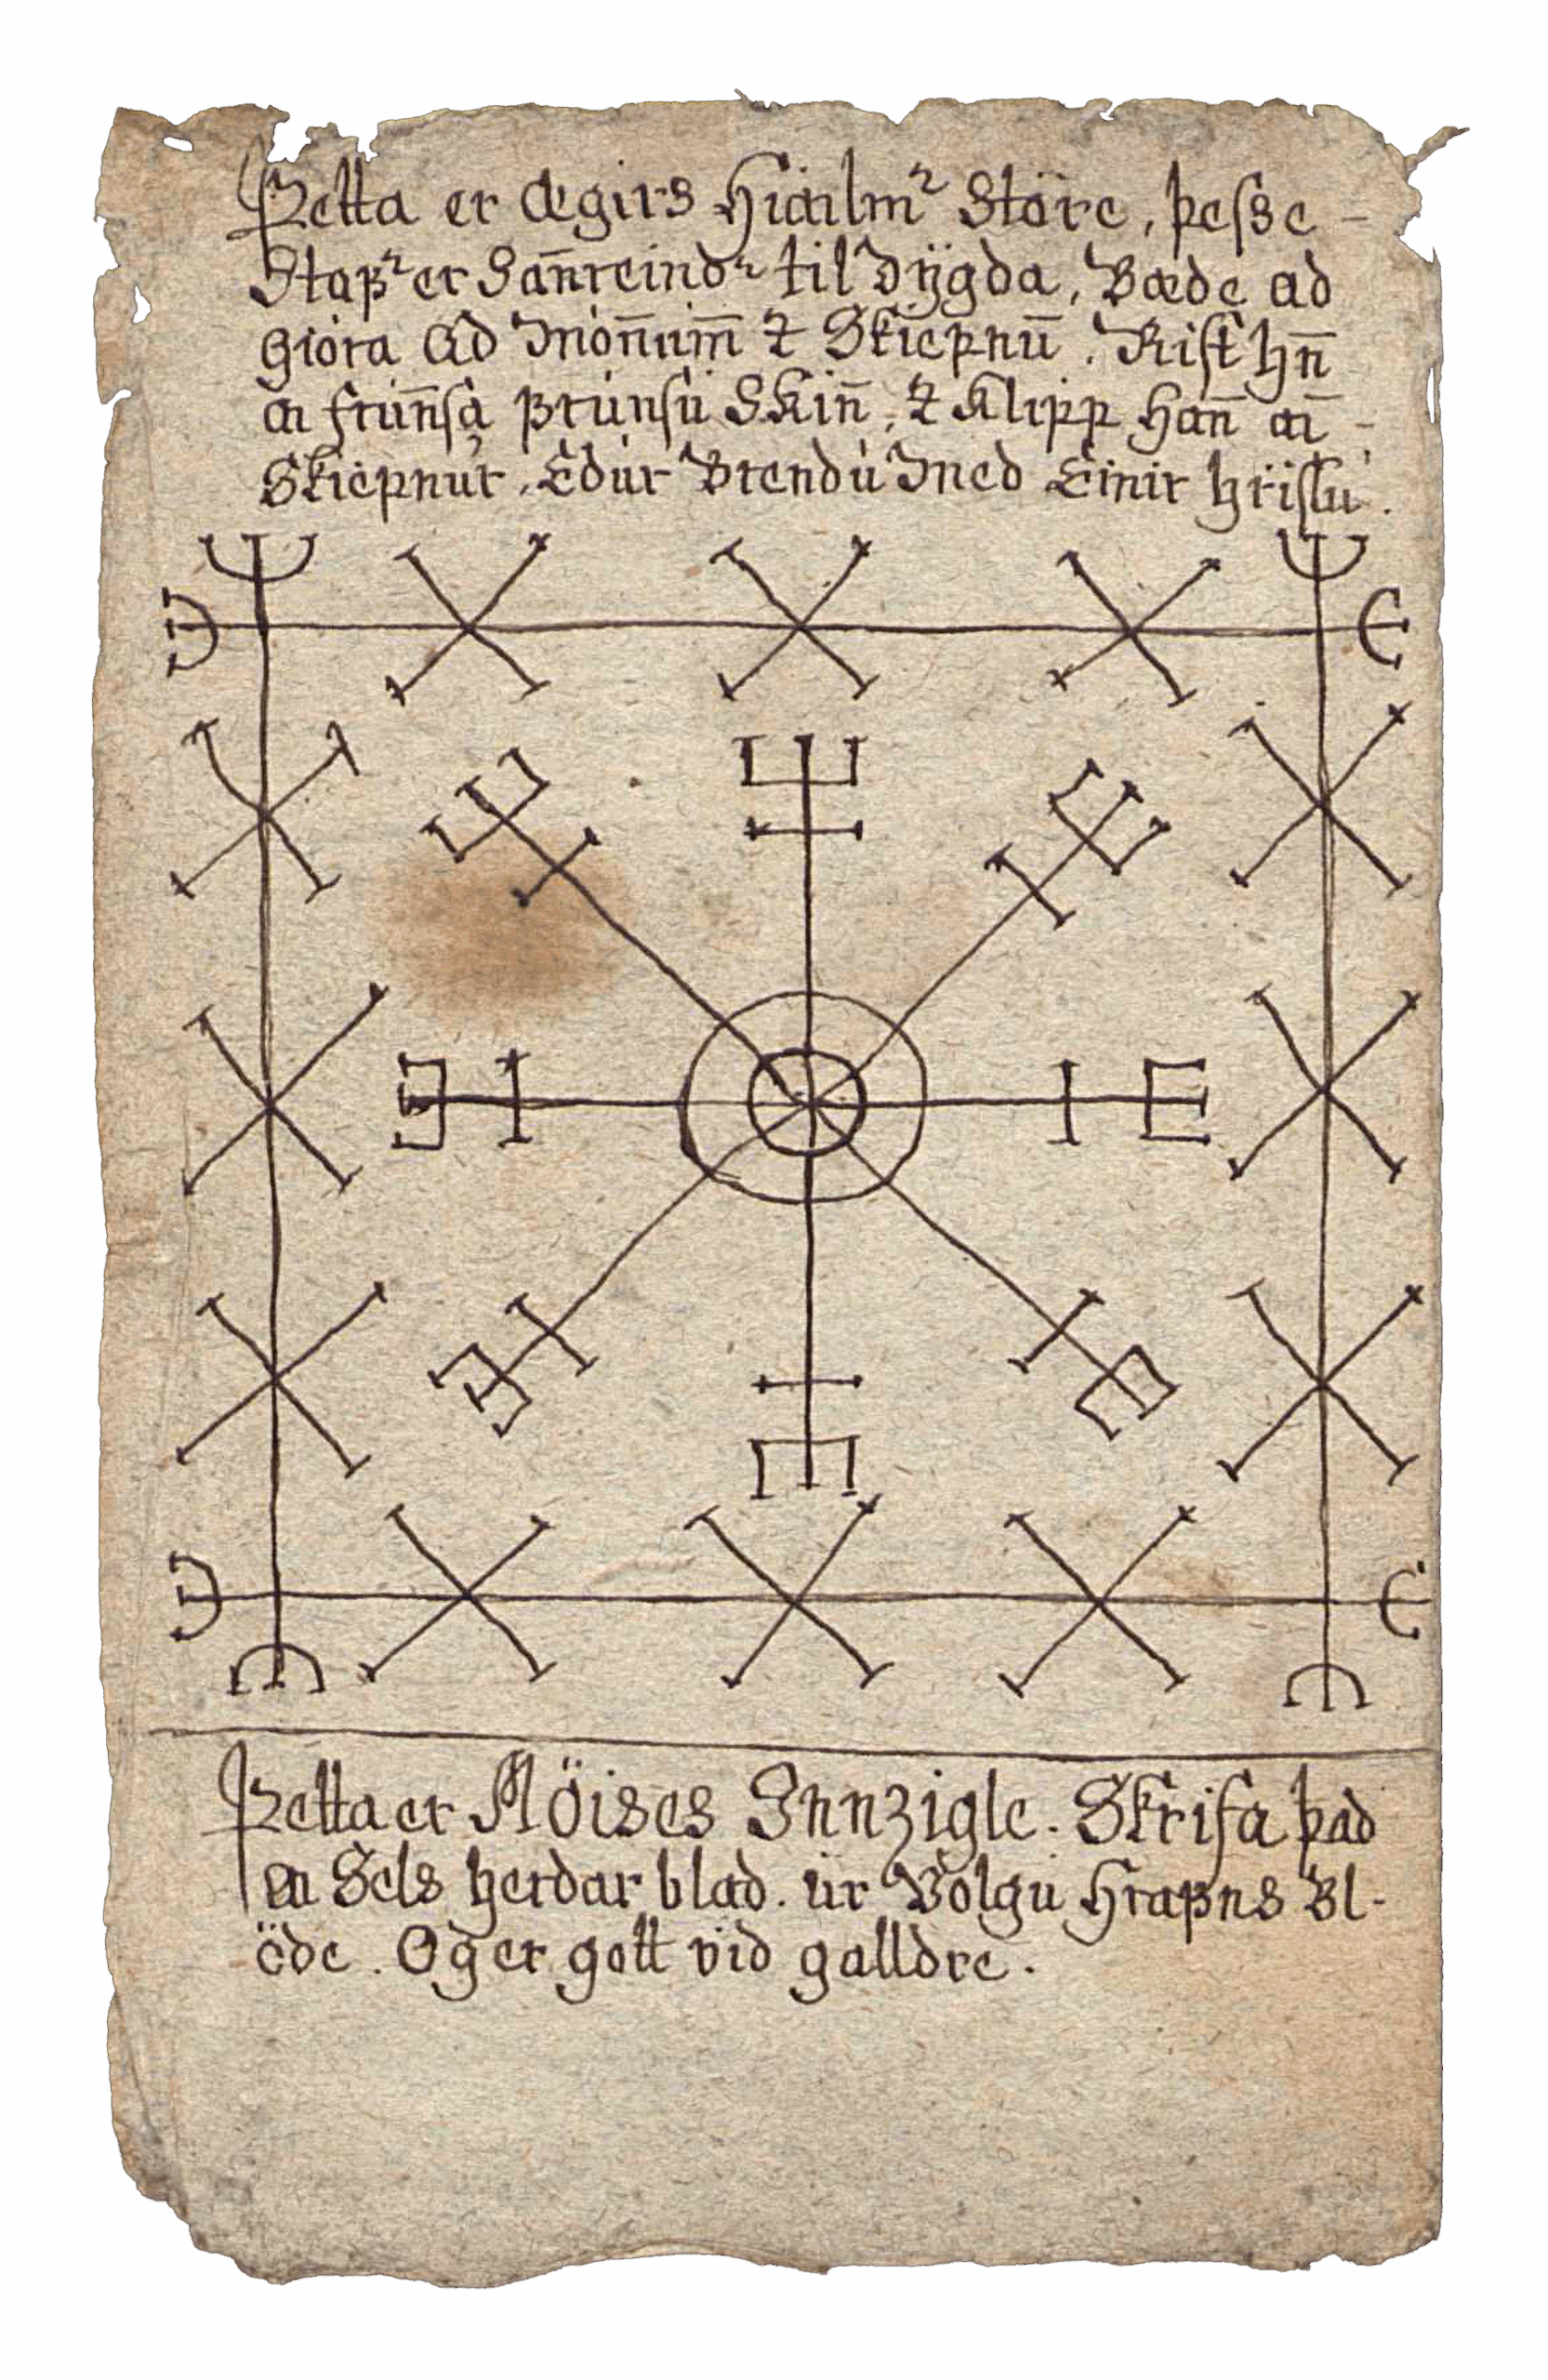 Þetta er Ægirs Hiálmʳ Störe, þesse -
Stafʳ er San̄reindʳ til Dÿgda, Bæde ad
giöra Ad Món̄um̄ ꝛ Skiepnū. Rist hn̄
á frún̄sá brúnsú Skin̄, ꝛ Klipp Han̄ á -
Skiepnúr. Edúr Brendú Med Einir hríslu.
Þetta er Möises Innzigle. Skrifa þad
á Sels herdar blad. úr Volgú Hrafns Bl-
öde. Og er gott vid galldre.